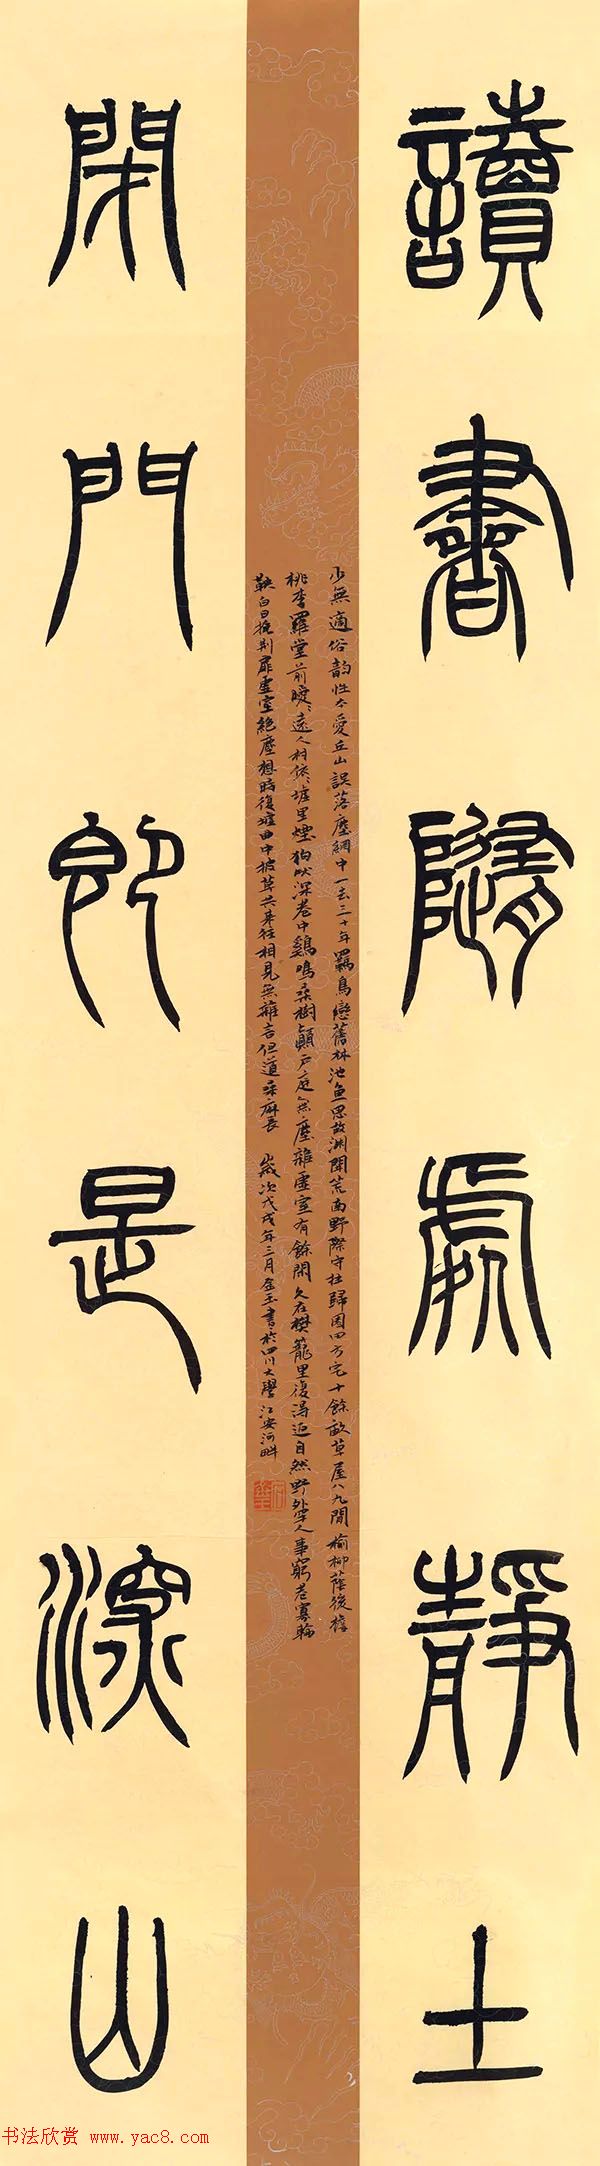 讀書隨處靜土
少無適俗韵性本愛丘山誤落塵網中一去三十年羈鳥戀舊林池魚思故淵開荒南野際守拙歸園四方宅十餘畝草屋八九間榆柳蔭後檐
桃李羅堂前曖々遠人村依々墟里煙狗吠深巷中鷄鳴桑樹顛戶庭無塵雜虛室有餘閑久在樊籠里復得返自然野外罕人事窮巷寡輪
鞅白日掩荆扉虛室絕塵想時復墟曲中披草共來往相見無雜言但道桑麻長 歲次戊戌年三月金玉書於四川大學江安河畔
閉門即是深山
书法欣赏 www.yac8.com